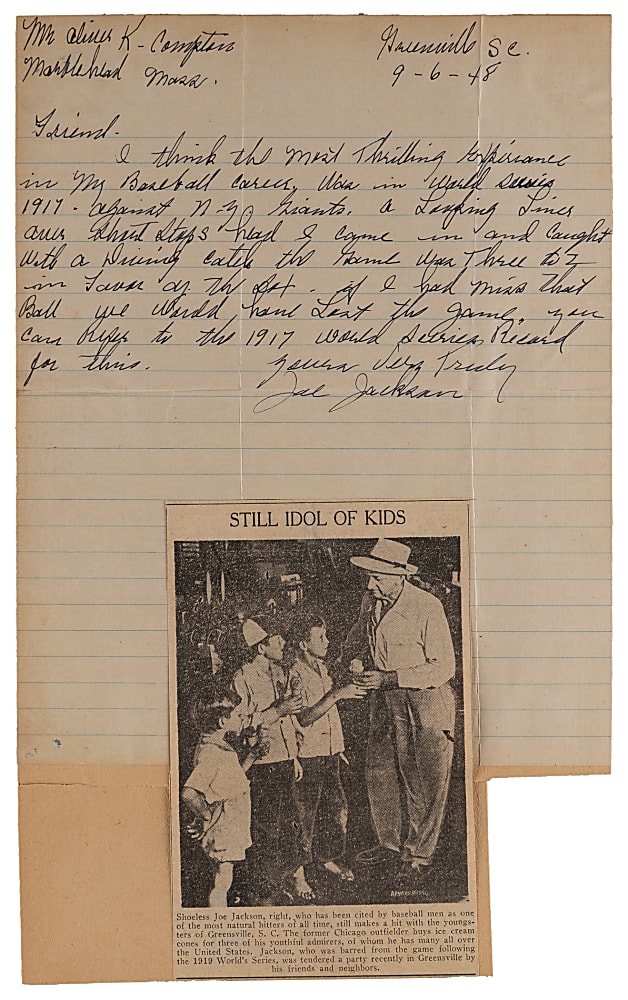 Mr Oliver K - Compton
Marblehead Mass.
Greenville S.C.
9 - 6 - 48
Friend -
I think the most Thrilling Experiance
in My Baseball career, Was in World Series
1917 - against N-Y Giants. a Looping Liner
over Short Stops head I came in and Caught
With a Diving Catch the Game Was Three to 2
in Favor of The Sox - if I had miss That
Ball we Would have Lost the game, you
can Refer to the 1917 World Series Record
for this. Yours Very Truly
Joe Jackson
STILL IDOL OF KIDS
Shoeless Joe Jackson, right, who has been cited by baseball men as one
of the most natural hitters of all time, still makes a hit with the youngs-
ters of Greensville, S. C. The former Chicago outfielder buys ice cream
cones for three of his youthful admirers, of whom he has many all over
the United States. Jackson, who was barred from the game following
the 1919 World's Series, was tendered a party recently in Greensville by
his friends and neighbors.